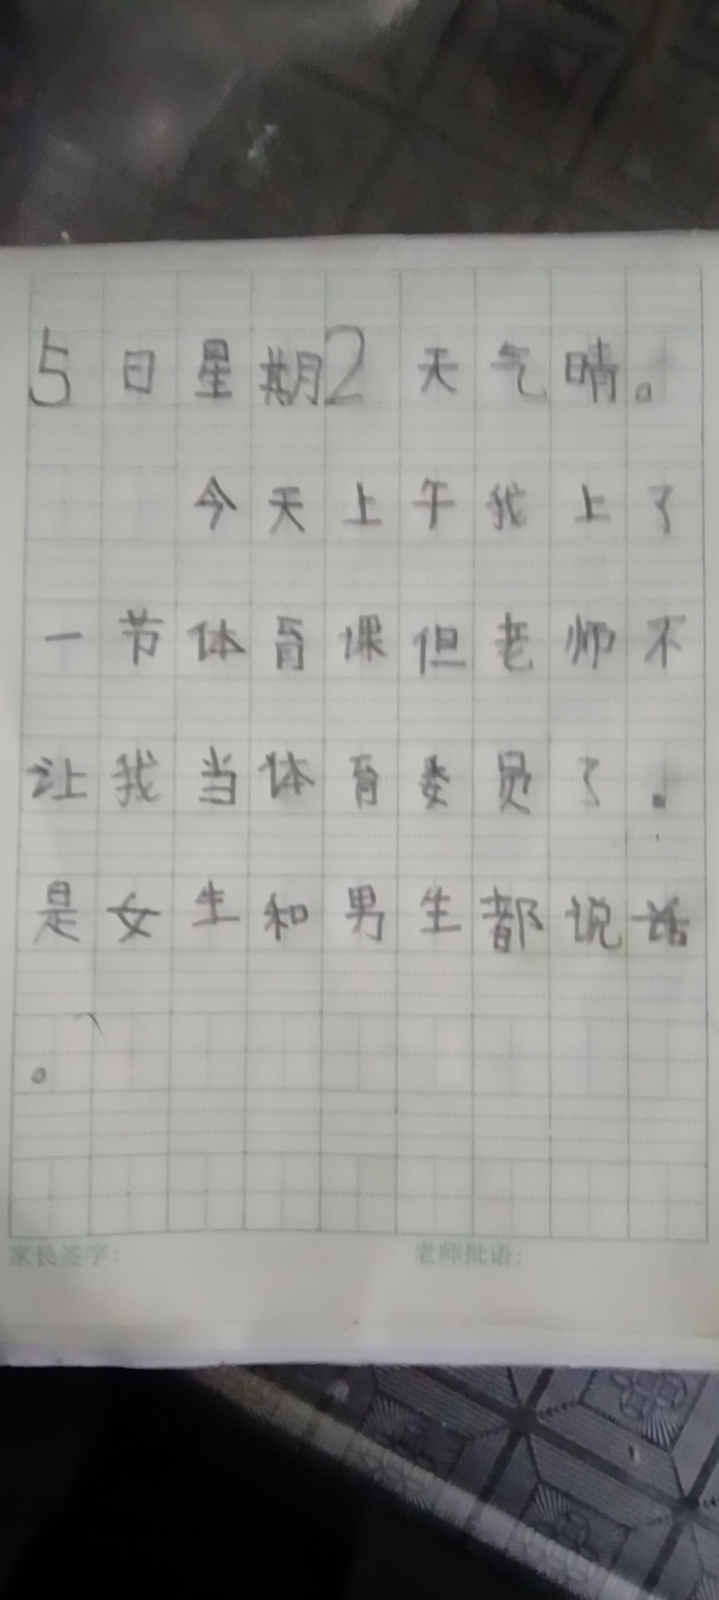 5日星期2天气晴。
今天上午我上了
一节体育课但老师不
让我当体育委员了。
是女生和男生都说话
。
家长签字：
老师批语：